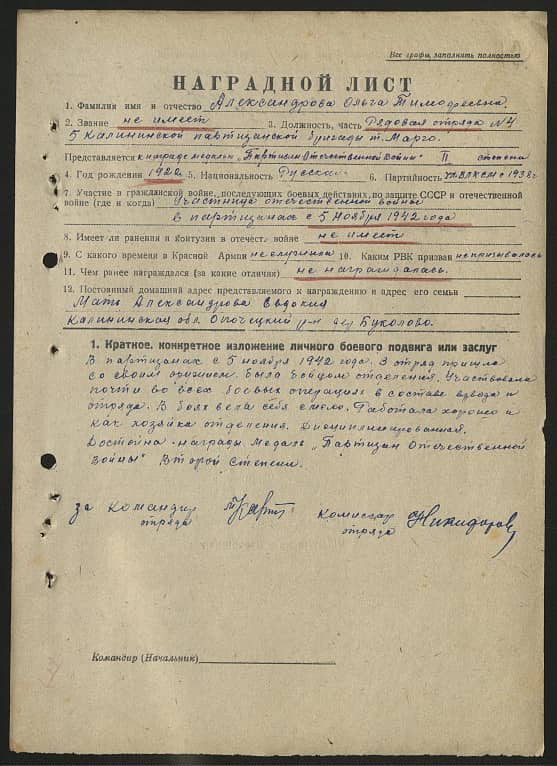 Все графы, заполнять полностью
НАГРАДНОЙ ЛИСТ
1. Фамилия имя и отчество Александрова Ольга Тимофеевна.
2. Звание не имеет 3. Должность, часть Рядовая отряда №4
5 Калининской партизанской бригады т. Марго.
Представляется к награде медаль, Партизан Отечественной войны" II степени
4. Год рождения 1922 5. Национальность Русская 6. Партийность член ВЛКСМ с 1938 г
7. Участие в гражданской войне, последующих боевых действиях по защите СССР и отечественной
войне (где и когда) Участница отечественной войны
в партизанах с 5 ноября 1942 года
8. Имеет ли ранения и контузии в отечест. войне не имеет
9. С какого времени в Красной Армии не служила 10. Каким РВК призван не призывалась
11. Чем ранее награждался (за какие отличия) не награждалась.
12. Постоянный домашний адрес представляемого к награждению и адрес его семьи
Мать Александрова Евдокия
Калининская обл. Опочецкий р-н дер Буколово.
1. Краткое, конкретное изложение личного боевого подвига или заслуг
В партизанах с 5 ноября 1942 года. В отряд пришла
со своим оружием. Была бойцом отделения. Участвовала
почти во всех боевых операциях в составе взвода и
отряда. В боях вела себя смело. Работала хорошо и
как хозяйка отделения. Дисциплинированная.
Достойна награды медаль „Партизан Отечественной
Войны" Второй степени.
за Командир комиссар Никифоров
отряда отряда
Командир (Начальник)